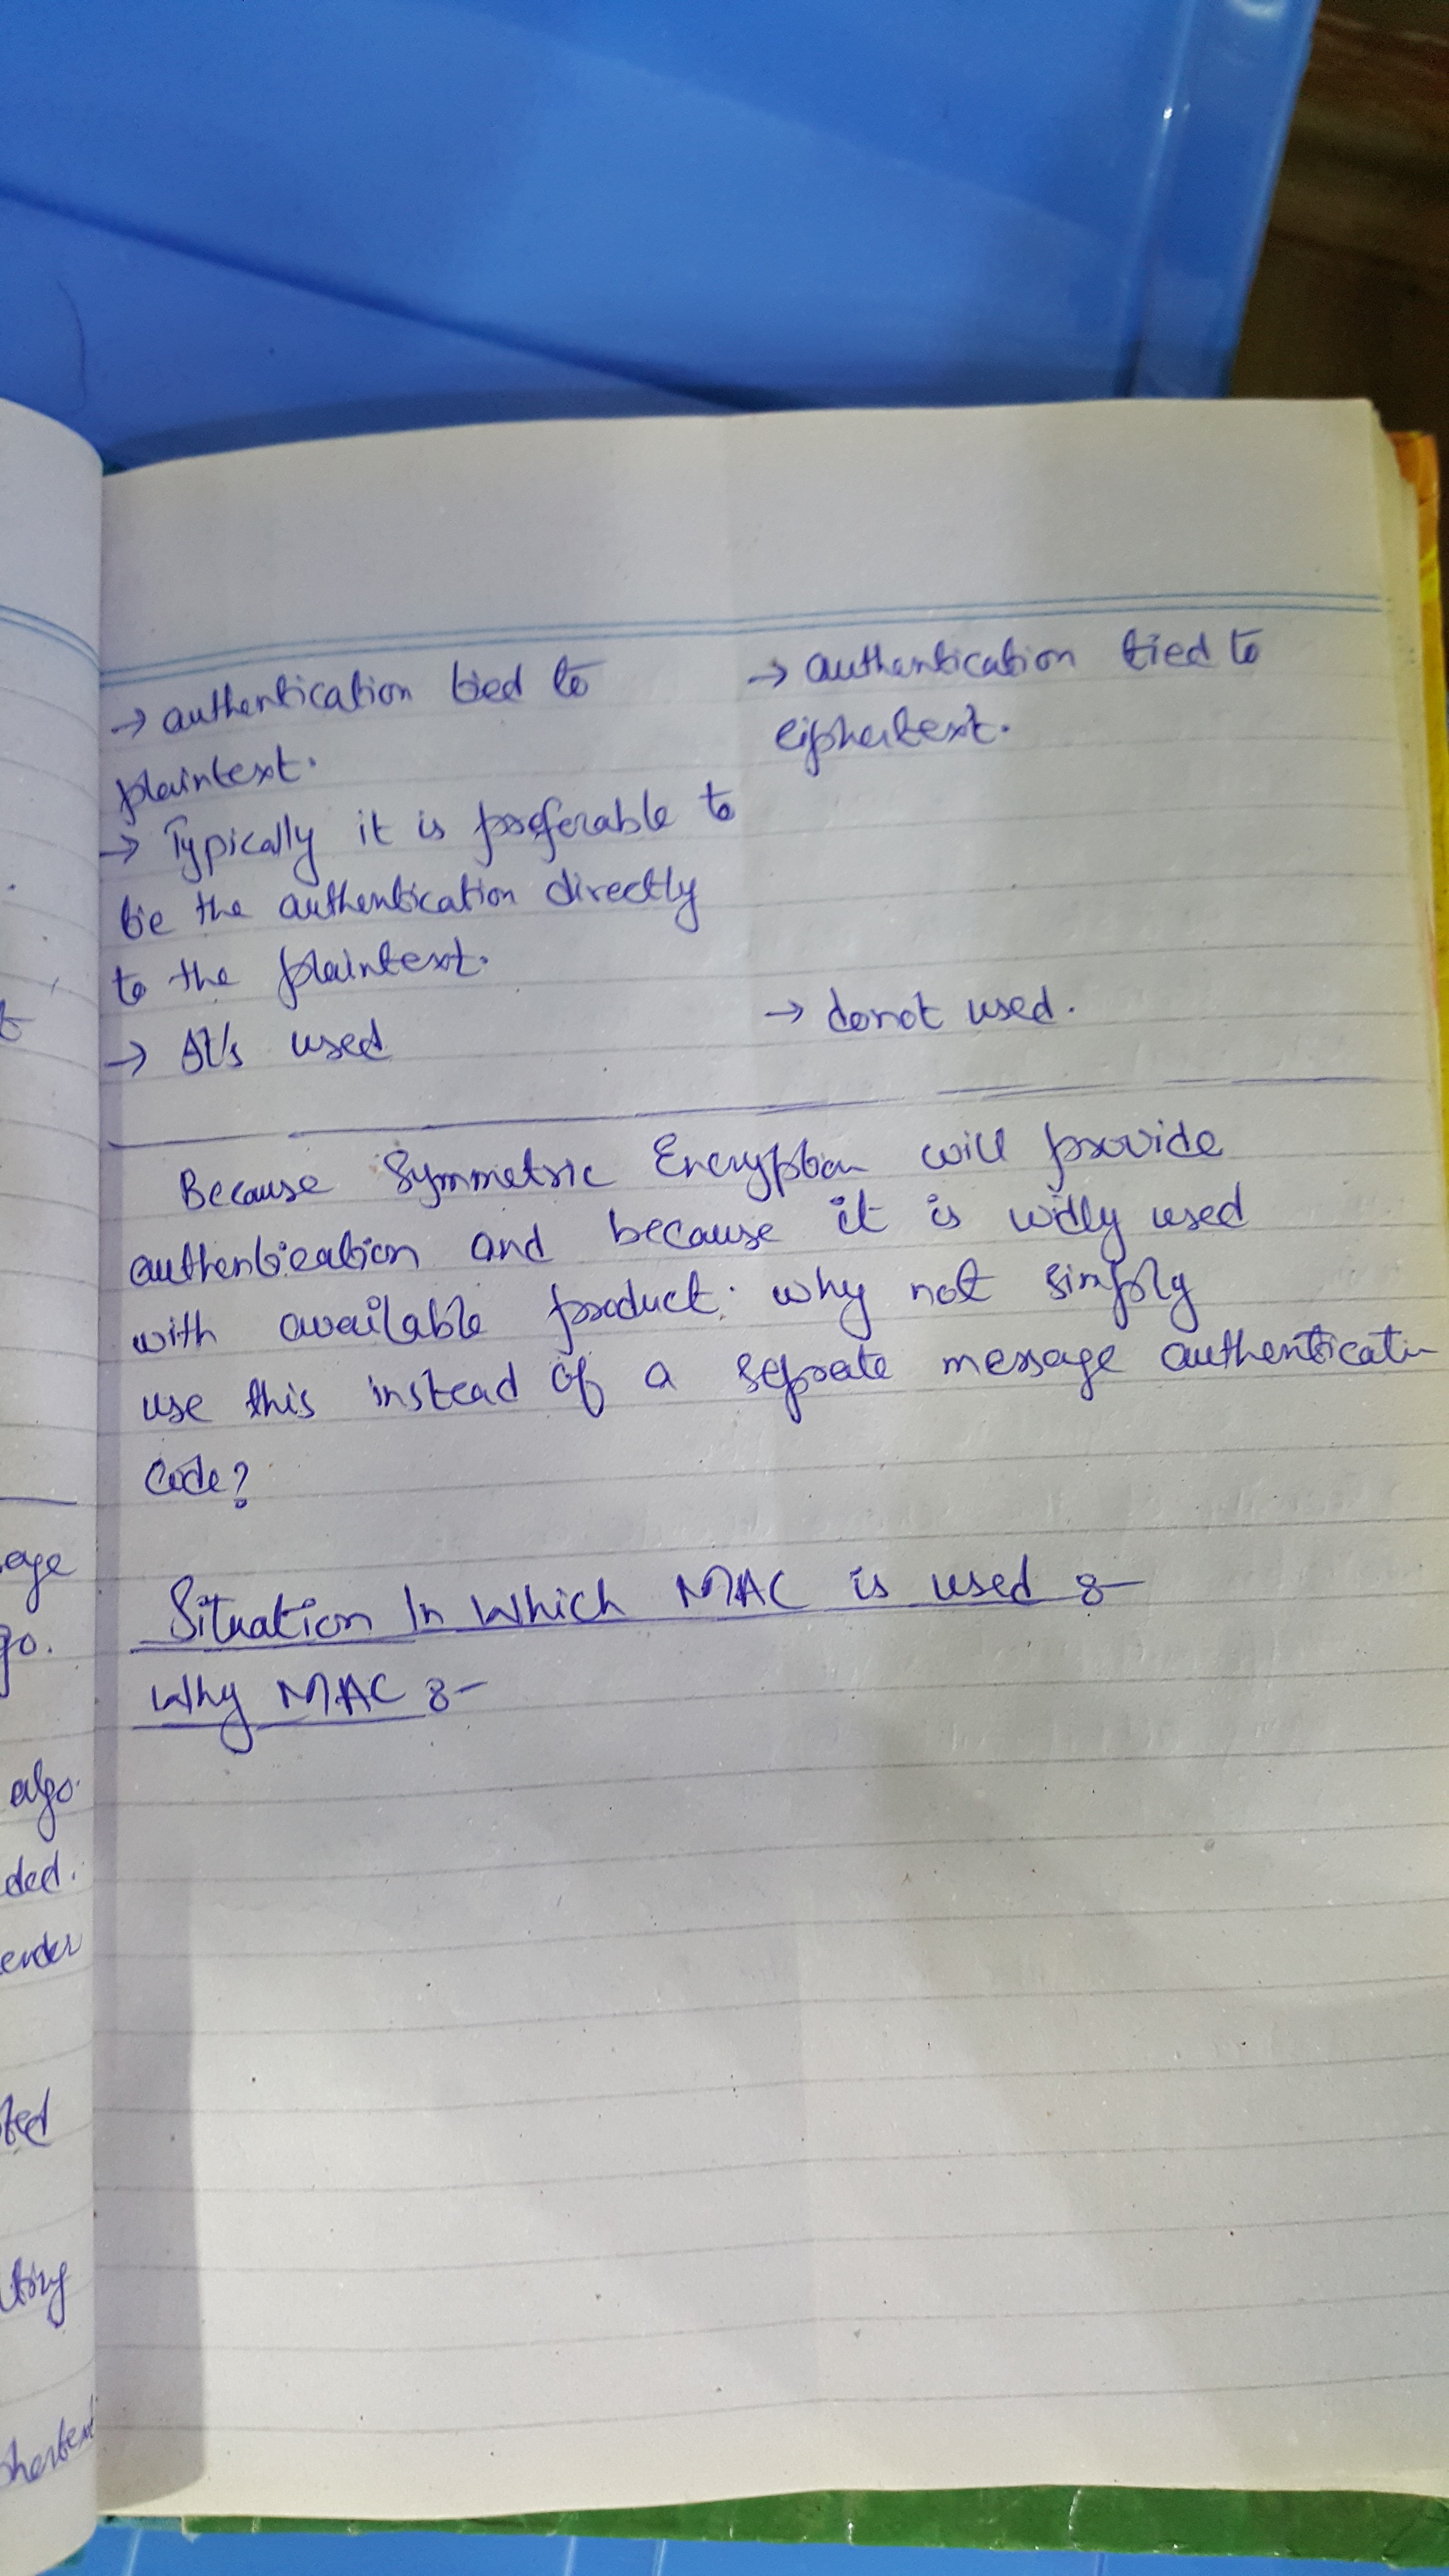 → authentication tied to
plaintext.
→ Typically it is preferable to
tie the authentication directly
to the plaintext.
→ It's used
→ authentication tied to
ciphertext.
→ donot used.
Because Symmetric Encryption will provide
authentication and because it is widly used
with available product. why not simply
use this instead of a seprate message authenticatn
code?
Situation In Which MAC is used :-
Why MAC :-
age
go.
algo.
ded.
ender
ted
ting
phertext